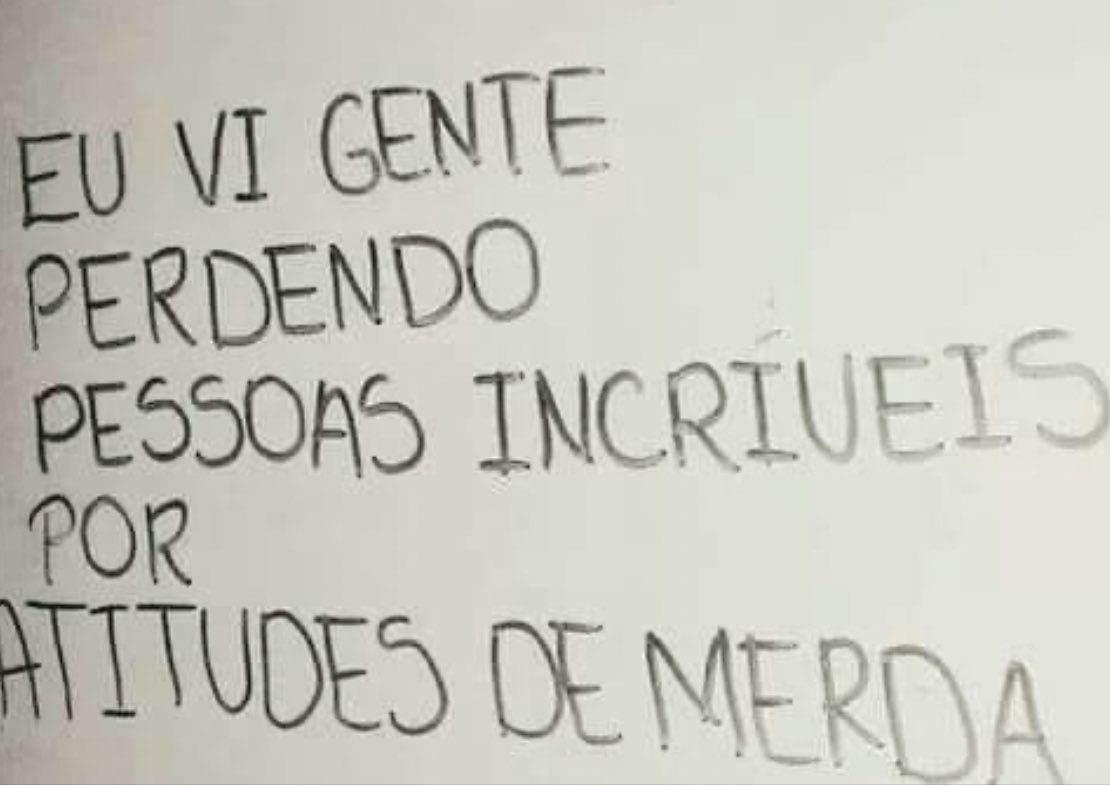 EU VI GENTE
PERDENDO
PESSOAS INCRÍVEIS
POR
ATITUDES DE MERDA